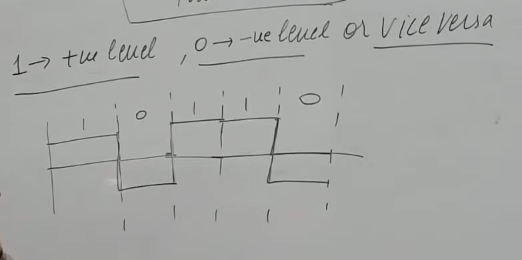 1 → +ve level , 0 → -ve level or vice versa
1 0 1 1 0